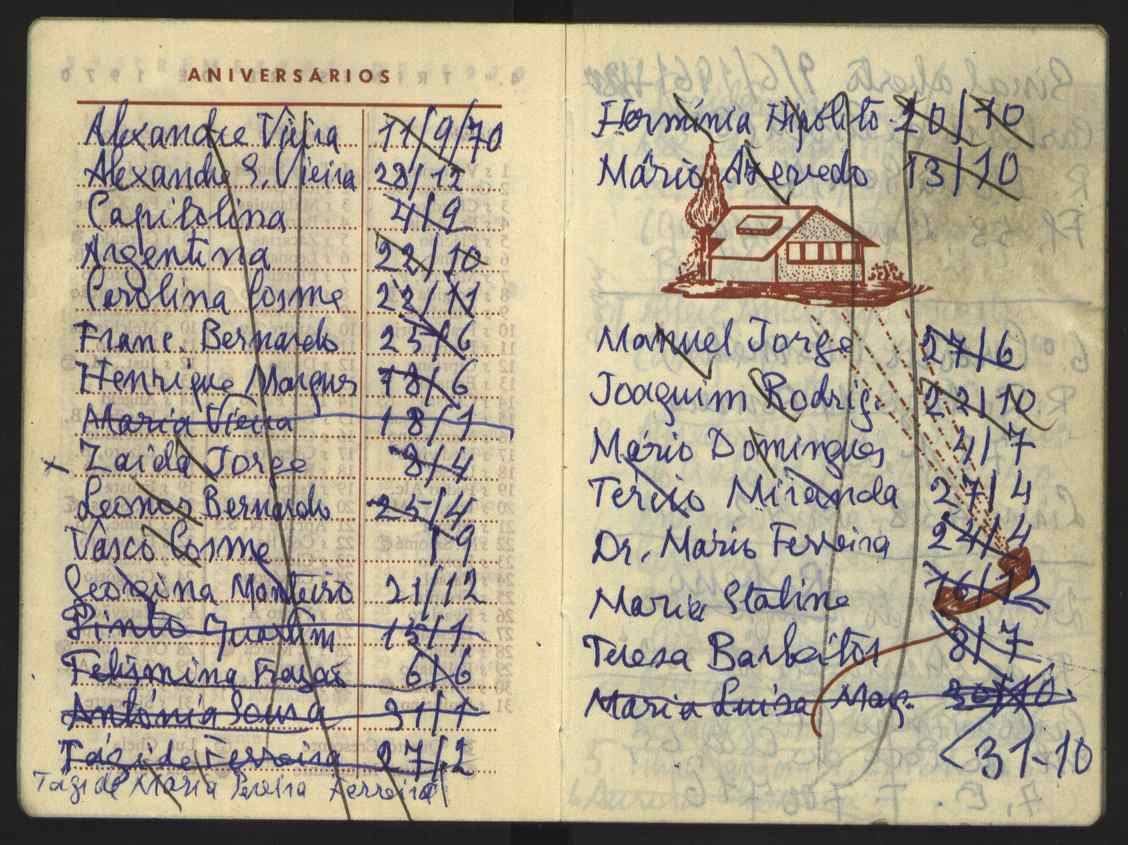 ANIVERSÁRIOS
Alexandre Vieira 11/9/70
Alexandre S. Vieira 28/12
Capitolina 4/9
Argentina 22/10
Carolina Cosme 22/11
Franc. Bernardo 25/6
Henrique Marques 18/6
Maria Vieira 18/1
x Zaida Jorge 8/4
Leonor Bernardo 25/4
Vasco Cosme 1/9
Georgina Monteiro 21/12
Pinto Quartim 15/1
Felismina Fragas 6/6
Antónia Sousa 31/1
Tágide Ferreira 27/2
Tágide Maria Pereira Ferreira
Hermínia Hipólito 20/10
Mário Azevedo 13/10
Manuel Jorge 27/6
Joaquim Rodrig. 22/10
Mário Domingues 4/7
Tércio Miranda 27/4
Dr. Mário Ferreira 24/4
Maria Staline
Teresa Barbeitos 8/7
Maria Luisa Marq. 30/10
31-10